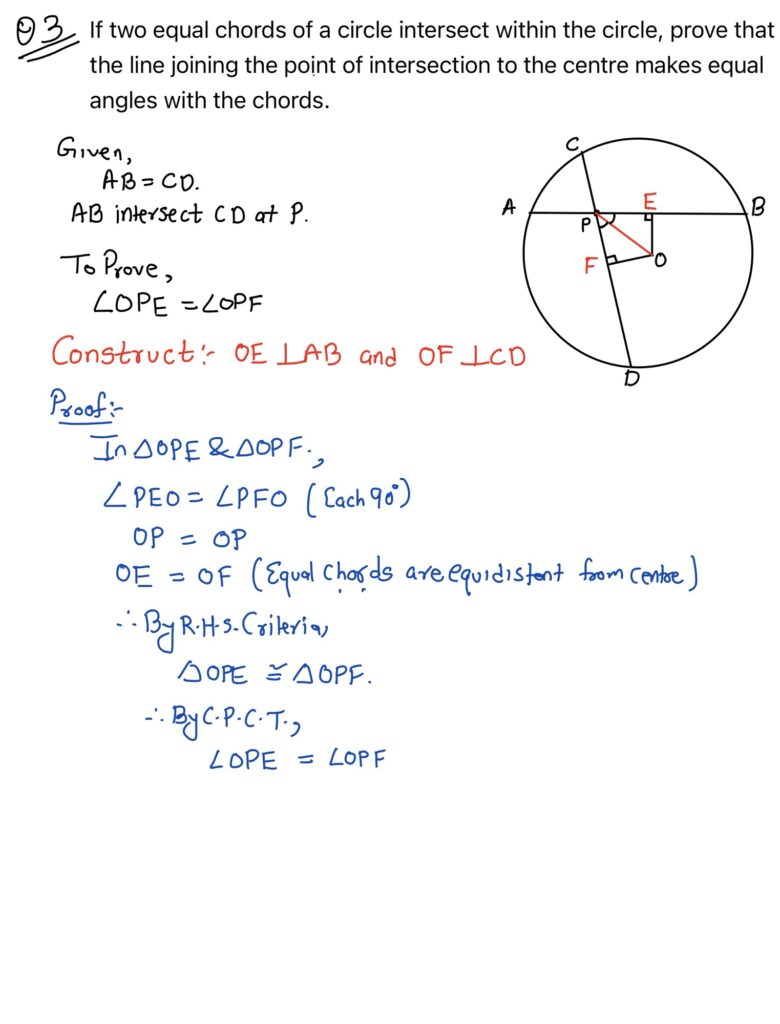 Q3
If two equal chords of a circle intersect within the circle, prove that
the line joining the point of intersection to the centre makes equal
angles with the chords.
Given,
AB = CD.
AB intersect CD at P.
To Prove,
∠OPE = ∠OPF
Construct:- OE ⊥ AB and OF ⊥ CD
C
A
E
B
P
F
O
D
Proof:-
In △OPE & △OPF.,
∠PEO = ∠PFO (Each 90°)
OP = OP
OE = OF (Equal Chords are equidistent from centre)
∴ By R.H.S. Criteria,
△OPE ≅ △OPF.
∴ By C.P.C.T.,
∠OPE = ∠OPF